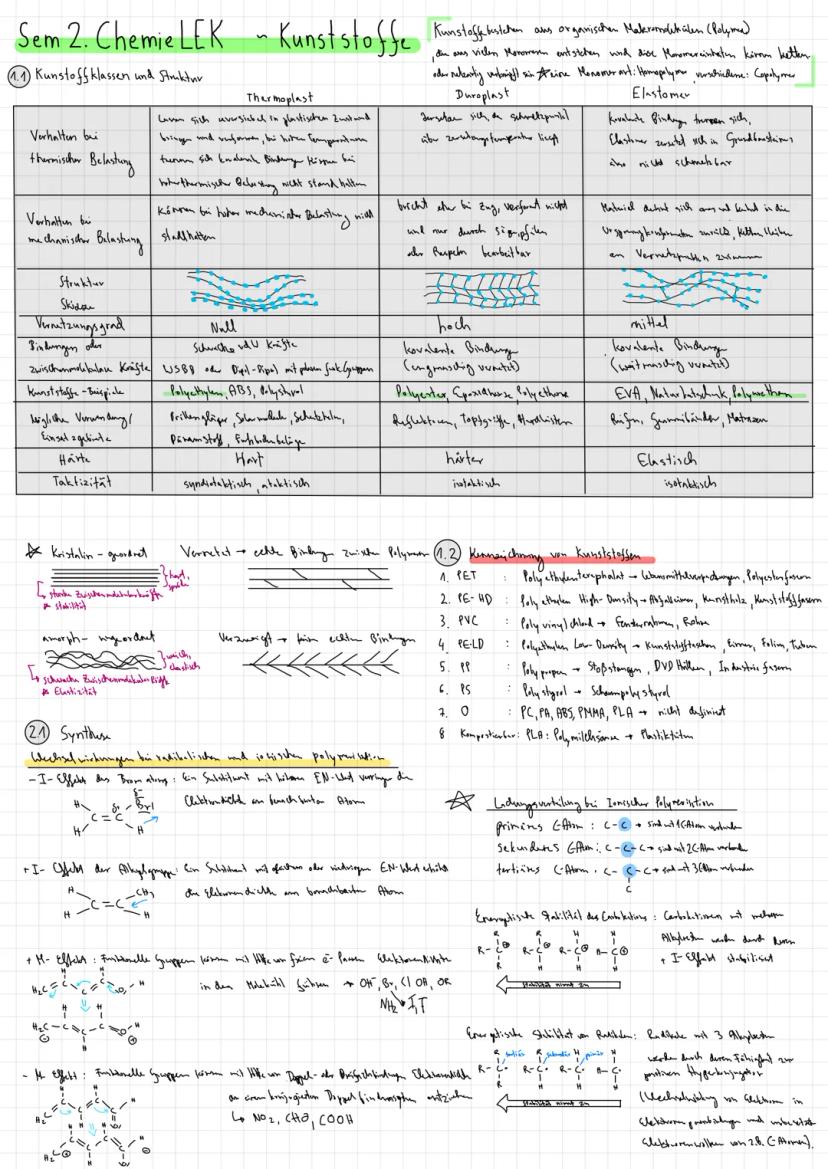 Sem 2. Chemie LEK ~ Kunststoffe
Kunststoffe bestehen aus organischen Makromolekülen (Polymer)
, die aus vielen Monomeren entstehen und diese Monomereinheiten können ketten
oder netzartig verknüpft sin eine Monomerart: Homopolymer, verschiedene: Copolymer
1.1 Kunstoffklassen und Struktur
Thermoplast Duroplast Elastomer
Verhalten bei
thermischer Belastung
lassen sich in plastischen Zustand
bringen und verformen, bei hohen Temperaturen
trennen sich kovalente Bindungen können bei
hoher thermischer Belastung nicht stand halten
zersetzen sich, da schmelzpunkt
über zersetzungstemperatur liegt
kovalente Bindung trennen sich,
Elastomer zersetzt sich in Grundbausteine,
also nicht schmelzbar
Verhalten bei
mechanischer Belastung
können bei hoher mechanischer Belastung nicht
standhalten
bricht eher bei Zug, verformt nicht
und nur durch
oder Raspeln bearbeitbar
Material dehnt sich aus und kehrt in die
zurück, Ketten bleiben
an Vernetzpunkten zusammen
Struktur
Skizze
Vernetzungsgrad Null hoch mittel
Bindungen oder
zwischenmolekulare Kräfte
schwache vdW Kräfte
WSBB oder Dipol-Dipol mit polaren funk. Gruppen
kovalente Bindung
(engmaschig vernetzt)
kovalente Bindung
(weitmaschig vernetzt)
Kunststoffe-Beispiele Polyethylen, ABS, Polystyrol Polyester, Epoxidharze EVA, Naturkautschuk, Polyurethan
Mögliche Verwendung/
Einsatzgebiete
Solarmodule, Schutzhelm,
Dämmstoff, Fußbodenbeläge
Reflektoren, Topfgriffe,
Reifen, Gummibänder, Matrazen
Härte Hart härter Elastisch
Taktizität syndiotaktisch, ataktisch isotaktisch isotaktisch
Kristalin - geordnet
hart, spröde
starke Zwischenmolekularkräfte
Stabilität
Vernetzt → echte Bindung zwischen Polymeren
amorph - ungeordnet
weich, elastisch
schwache Zwischenmolekularkräfte
Elastizität
Verzweigt → kein echten Bindungen
1.2 Kennzeichnung von Kunststoffen
1. PET : Polyethylenterephthalat → Polyesterfasern
2. PE-HD : Polyethylen High-Density → Abfalleimer, Kunstholz, Kunststofffasern
3. PVC : Polyvinylchlorid → Fensterrahmen, Rohre
4. PE-LD : Polyethylen Low-Density → Kunststofftaschen, Eimer, Folien, Tuben
5. PP : Polypropen → Stoßstangen, DVD Hüllen, Industriefasern
6. PS : Polystyrol → Schaumpolystyrol
7. O : PC, PA, ABS, PMMA, PLA → nicht definiert
8 Kompostierbar: PLA: Polymilchsäure → Plastiktüten
2.1 Synthese
Wechselwirkungen bei radikalischen und ionischen polymerisation
- I- Effekt des Bromatoms: Ein Substituent mit höherem EN-Wert verringert die
Elektronendichte am benachbarten Atom
H C=C H H Br δ+ δ-
+ I- Effekt der Alkylgruppe: Ein Substituent mit gleichem oder niedrigerem EN-Wert erhöht
die Elektronendichte am benachbarten Atom
H C=C CH3 H H
+ M- Effekt: Funktionelle Gruppen können mit Hilfe von freien e- Paaren Elektronendichte
in das Molekül führen → OH, Br, Cl, OH, OR
NH2, I, F
- M Effekt: Funktionelle Gruppen können mit Hilfe von Doppel- oder Dreifachbindung Elektronendichte
an einem konjugierten Doppelbindungssystem entziehen
↳ NO2, CHO, COOH
Ladungsverteilung bei Ionischer Polymerisation
primäres C-Atom : C-C → sind mit 1 C-Atom verbunden
sekundäres C-Atom: C-C-C → sind mit 2 C-Atom verbunden
tertiäres C-Atom: C-C-C → sind mit 3 C-Atom verbunden
C
Energetische Stabilität des Carbokations: Carbokationen mit mehreren
Alkylresten werden durch deren
+ I-Effekt stabilisiert
Stabilität nimmt zu
Energetische Stabilität von Radikalen: Radikale mit 3 Alkylresten
tertiär sekundär primär
werden durch deren Fähigkeit zur
positiven Hyperkonjugation
(Wechselwirkung von Elektronen in
und unbesetzte
Elektronenwolken von z.B. C-Atomen).
Stabilität nimmt zu